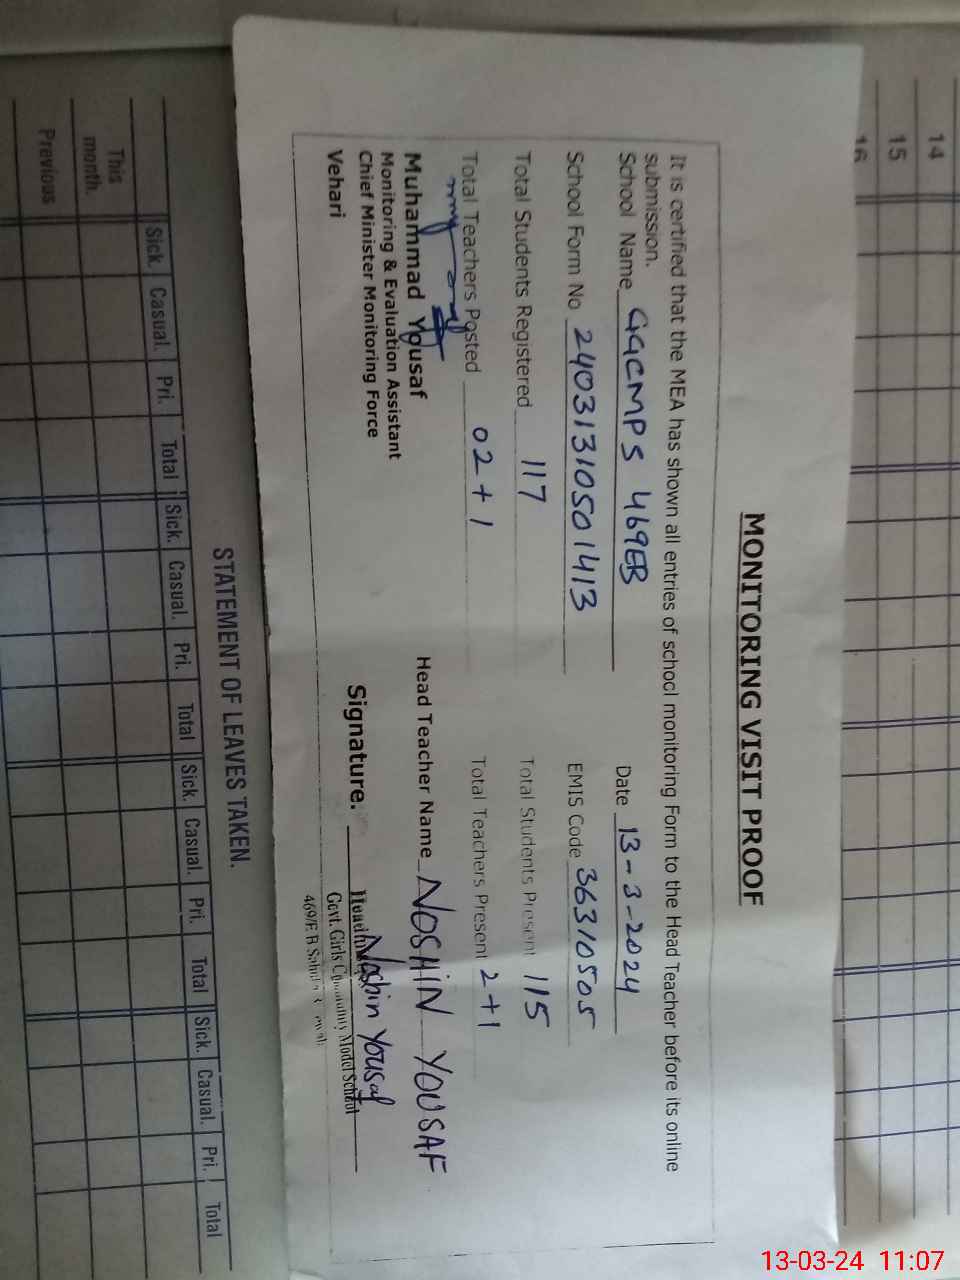 MONITORING VISIT PROOF
It is certified that the MEA has shown all entries of school monitoring Form to the Head Teacher before its online
submission.
School Name GGCMPS 469EB Date 13-3-2024
School Form No 2403131050501413 EMIS Code 36310505
Total Students Registered 117 Total Students Present 115
Total Teachers Posted 02+1 Total Teachers Present 2+1
Muhammad Yousaf
Monitoring & Evaluation Assistant
Chief Minister Monitoring Force
Vehari
Head Teacher Name NOSHIN YOUSAF
Signature. Noshin Yousaf
Govt. Girls Community Model School
469/E.B
14
15
16
STATEMENT OF LEAVES TAKEN.
Sick. Casual. Pri. Total Sick. Casual. Pri. Total Sick. Casual. Pri. Total Sick. Casual. Pri. Total
This
month.
Previous
13-03-24 11:07